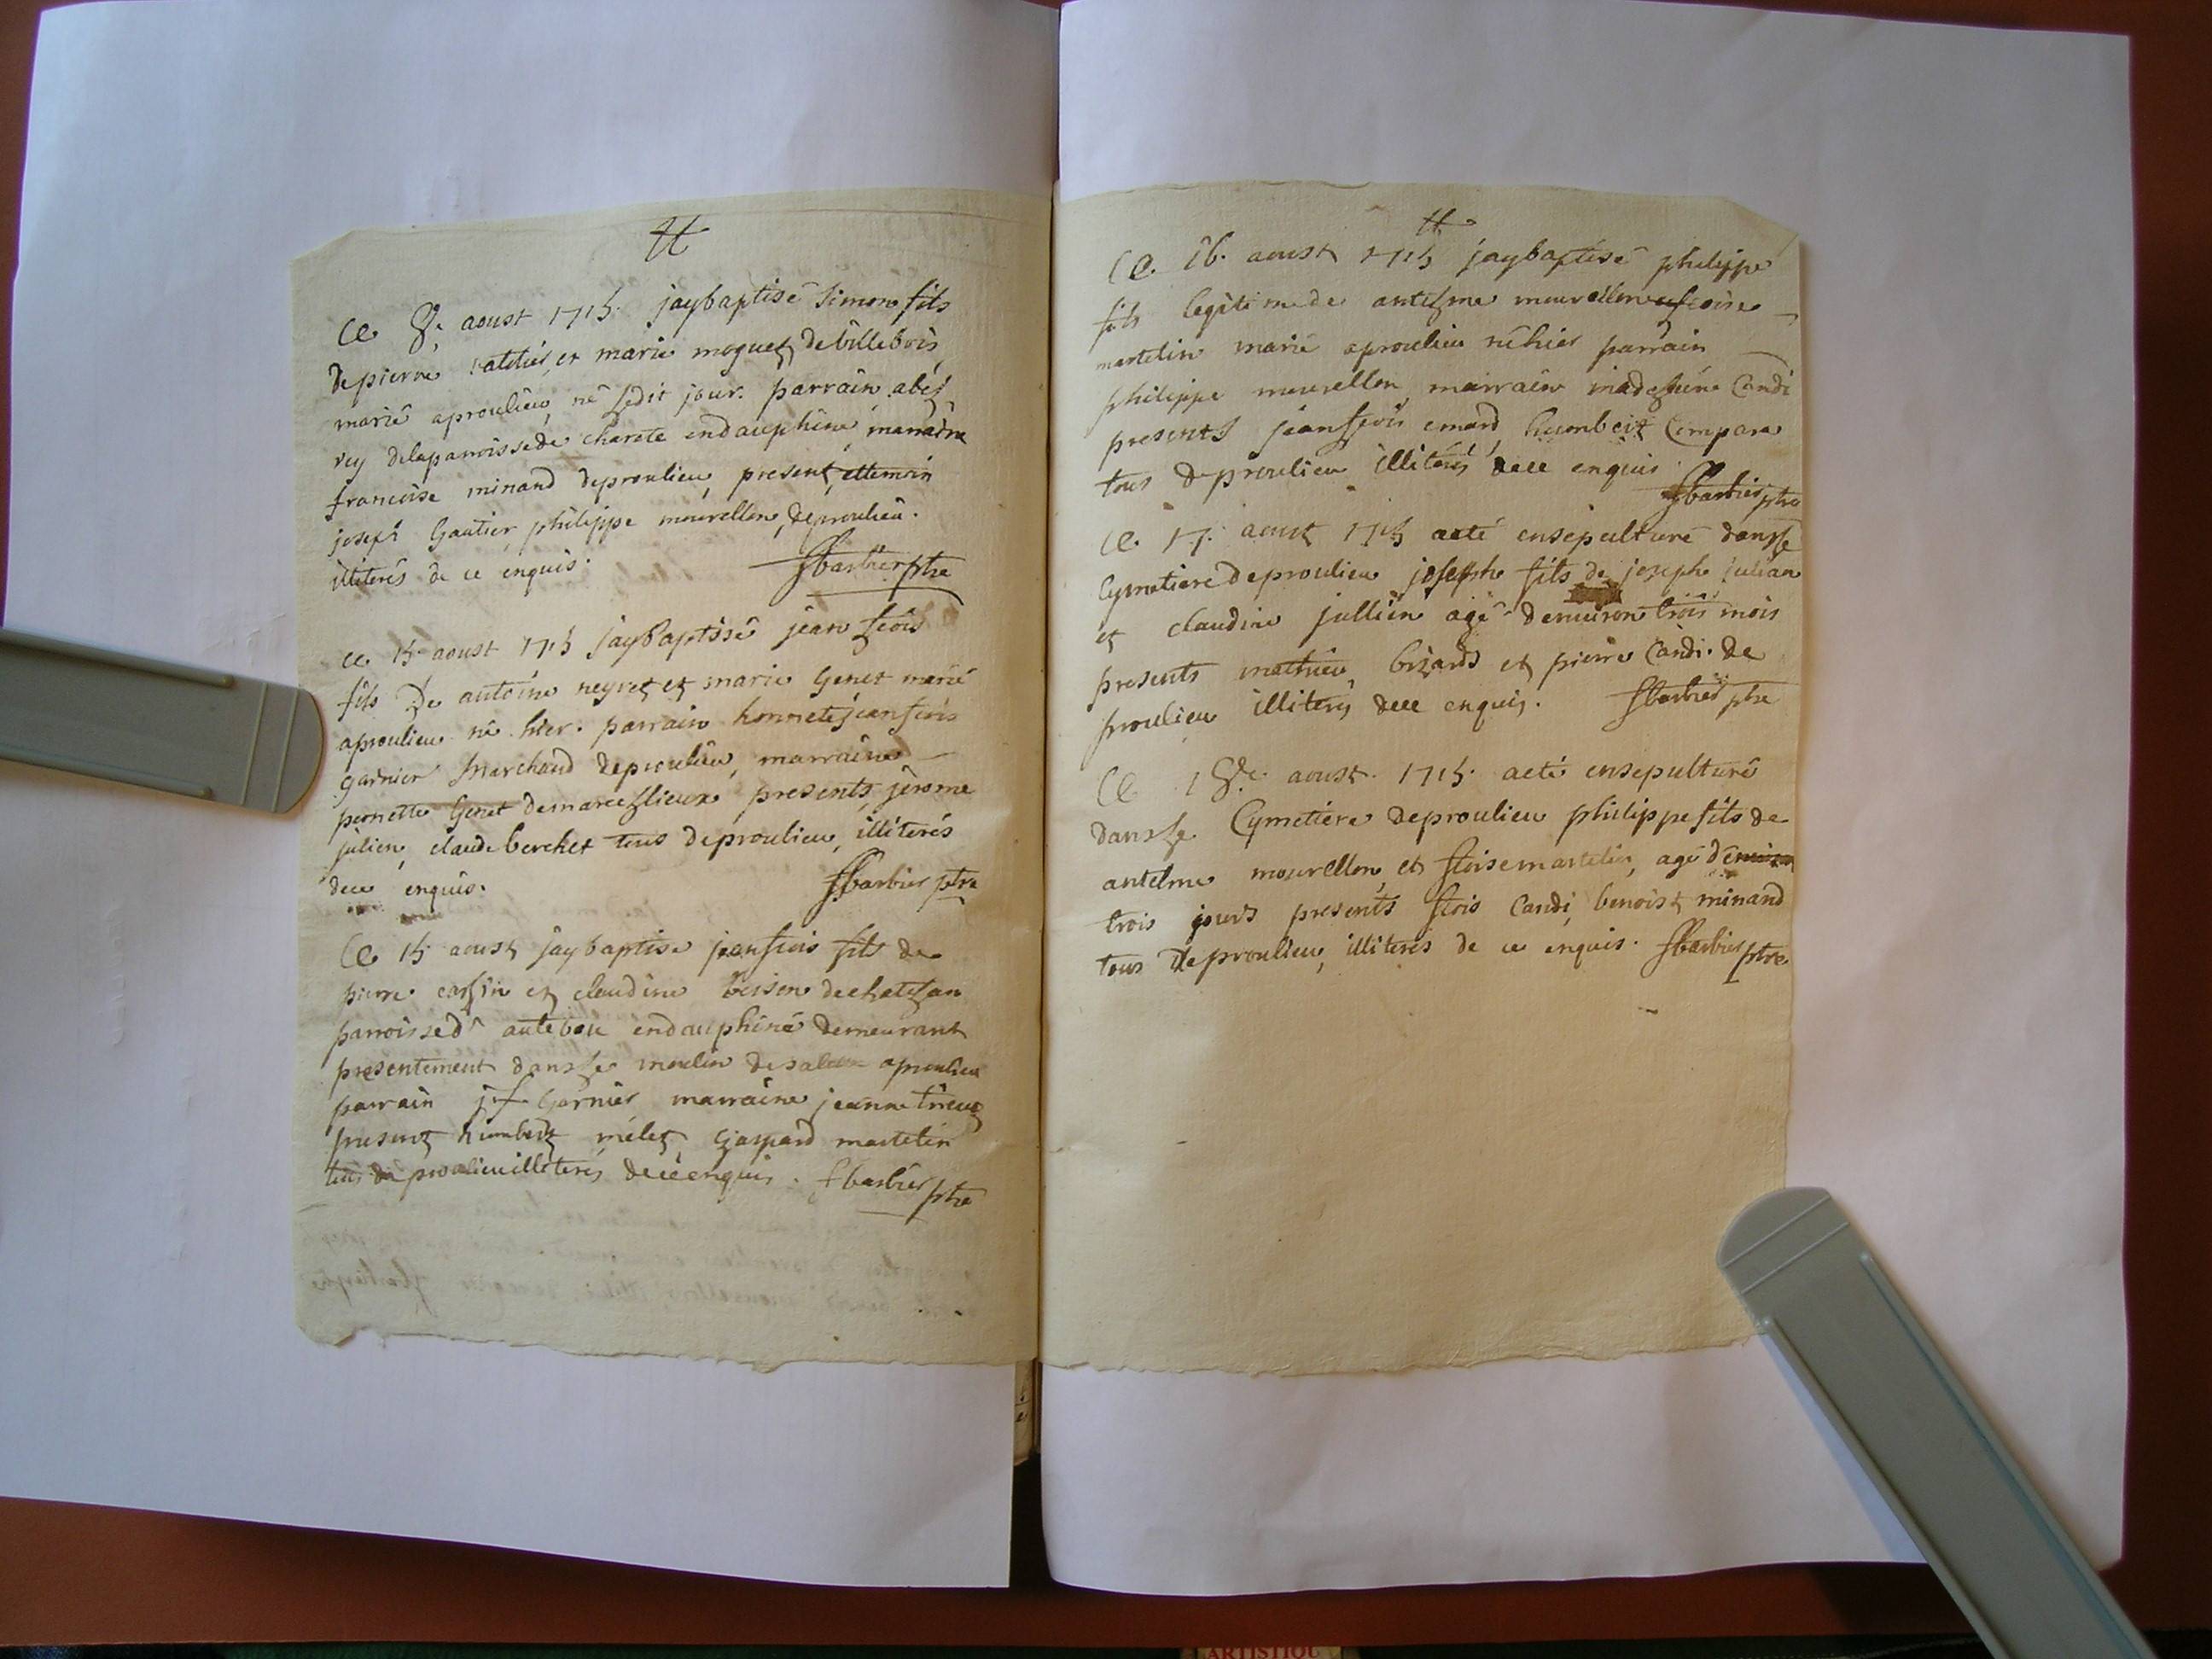 Ce 8e aoust 1715. jay baptisé Simon fils
de pierre et marie moguet de billebois
marié a proulieu, né ledit jour. parrain abel
rey de la parroisse de charete en dauphiné, marraine
francoise minand de proulieu, present et temoin
joseph Gautier philippe mourellon, de proulieu.
illiterés de ce enquis. Fbarbier ptre
ce 15. aoust 1715 jay baptisé jean frois
fils de antoine neyret et marie Genet marié
a proulieu né hier. parrain honnete jean frois
garnier Marchand de proulieu, marraine
pernette Genet de marcellieux presents jérome
julien, claude berchet tous de proulieu, illiterés
de ce enquis. Fbarbier ptre
Ce 15 aoust jay baptisé jean frois fils de
pierre et claudine de chatelan
parroisse d' en dauphiné demeurant
presentement dans le moulin de a proulieu
parrain j f Garnier marraine jeanne
present humbert mélet, Gaspard martelin
tous de proulieu illiterés de ce enquis. Fbarbier ptre
Ce. 16. aoust 1715 jay baptisé philippe
fils legitime de antelme mourellon et froise
martelin marié a proulieu né hier parrain
philippe mourellon, marraine Candi
presents jean frois emard, humbert Compara
tous de proulieu illiterés de ce enquis Fbarbier ptre
Ce. 17. aoust 1715 a eté ensepulturé dans le
Cymetiere de proulieu joseph fils de joseph julian
et claudine jullien agé d'environ trois mois
presents mathieu brizard et pierre Candi de
proulieu illiterés de ce enquis. Fbarbier ptre
Ce 18e. aoust. 1715. a eté ensepulturé
dans le Cymetiere de proulieu philippe fils de
antelme mourellon, et froise martelin, agé d'environ
trois jours presents frois Candi, benoist minand
tous de proulieu, illiterés de ce enquis. Fbarbier ptre
ARTISTIQU